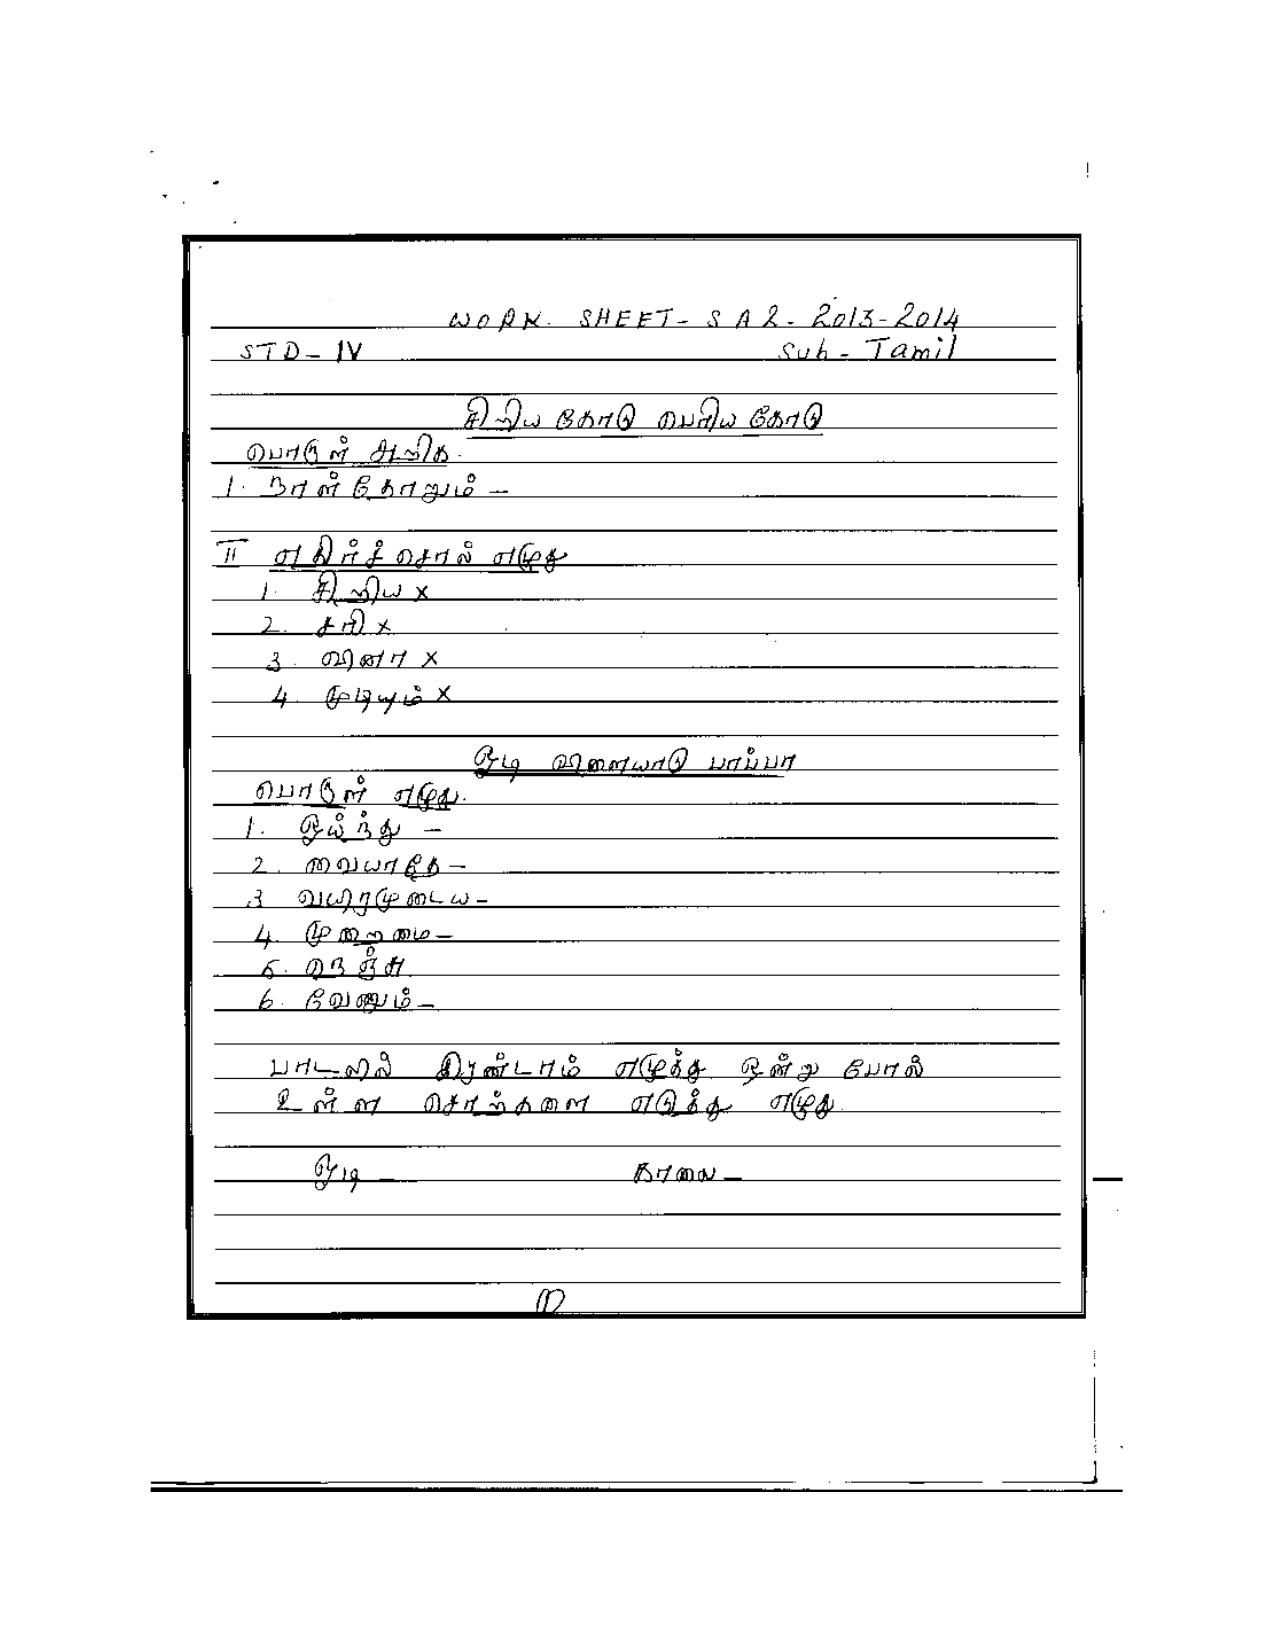 WORK. SHEET- S A 2. 2013-2014
STD- IV Sub- Tamil
சிறிய கோடு பெரிய கோடு
பொருள் அறிக.
1. நாள்தோறும் –
II எதிர்ச்சொல் எழுதுக
1. சிறிய x
2. சரி x
3. வினா x
4. முடியும் x
ஓடி விளையாடு பாப்பா
பொருள் எழுது.
1. ஓய்ந்து –
2. வையாதே –
3 வயிரமுடைய –
4. முறைமை –
5. நெஞ்சு
6. வேணும் –
பாடலில் இரண்டாம் எழுத்து ஒன்று போல்
உள்ள சொற்களை எடுத்து எழுது.
ஓடி – காலை –